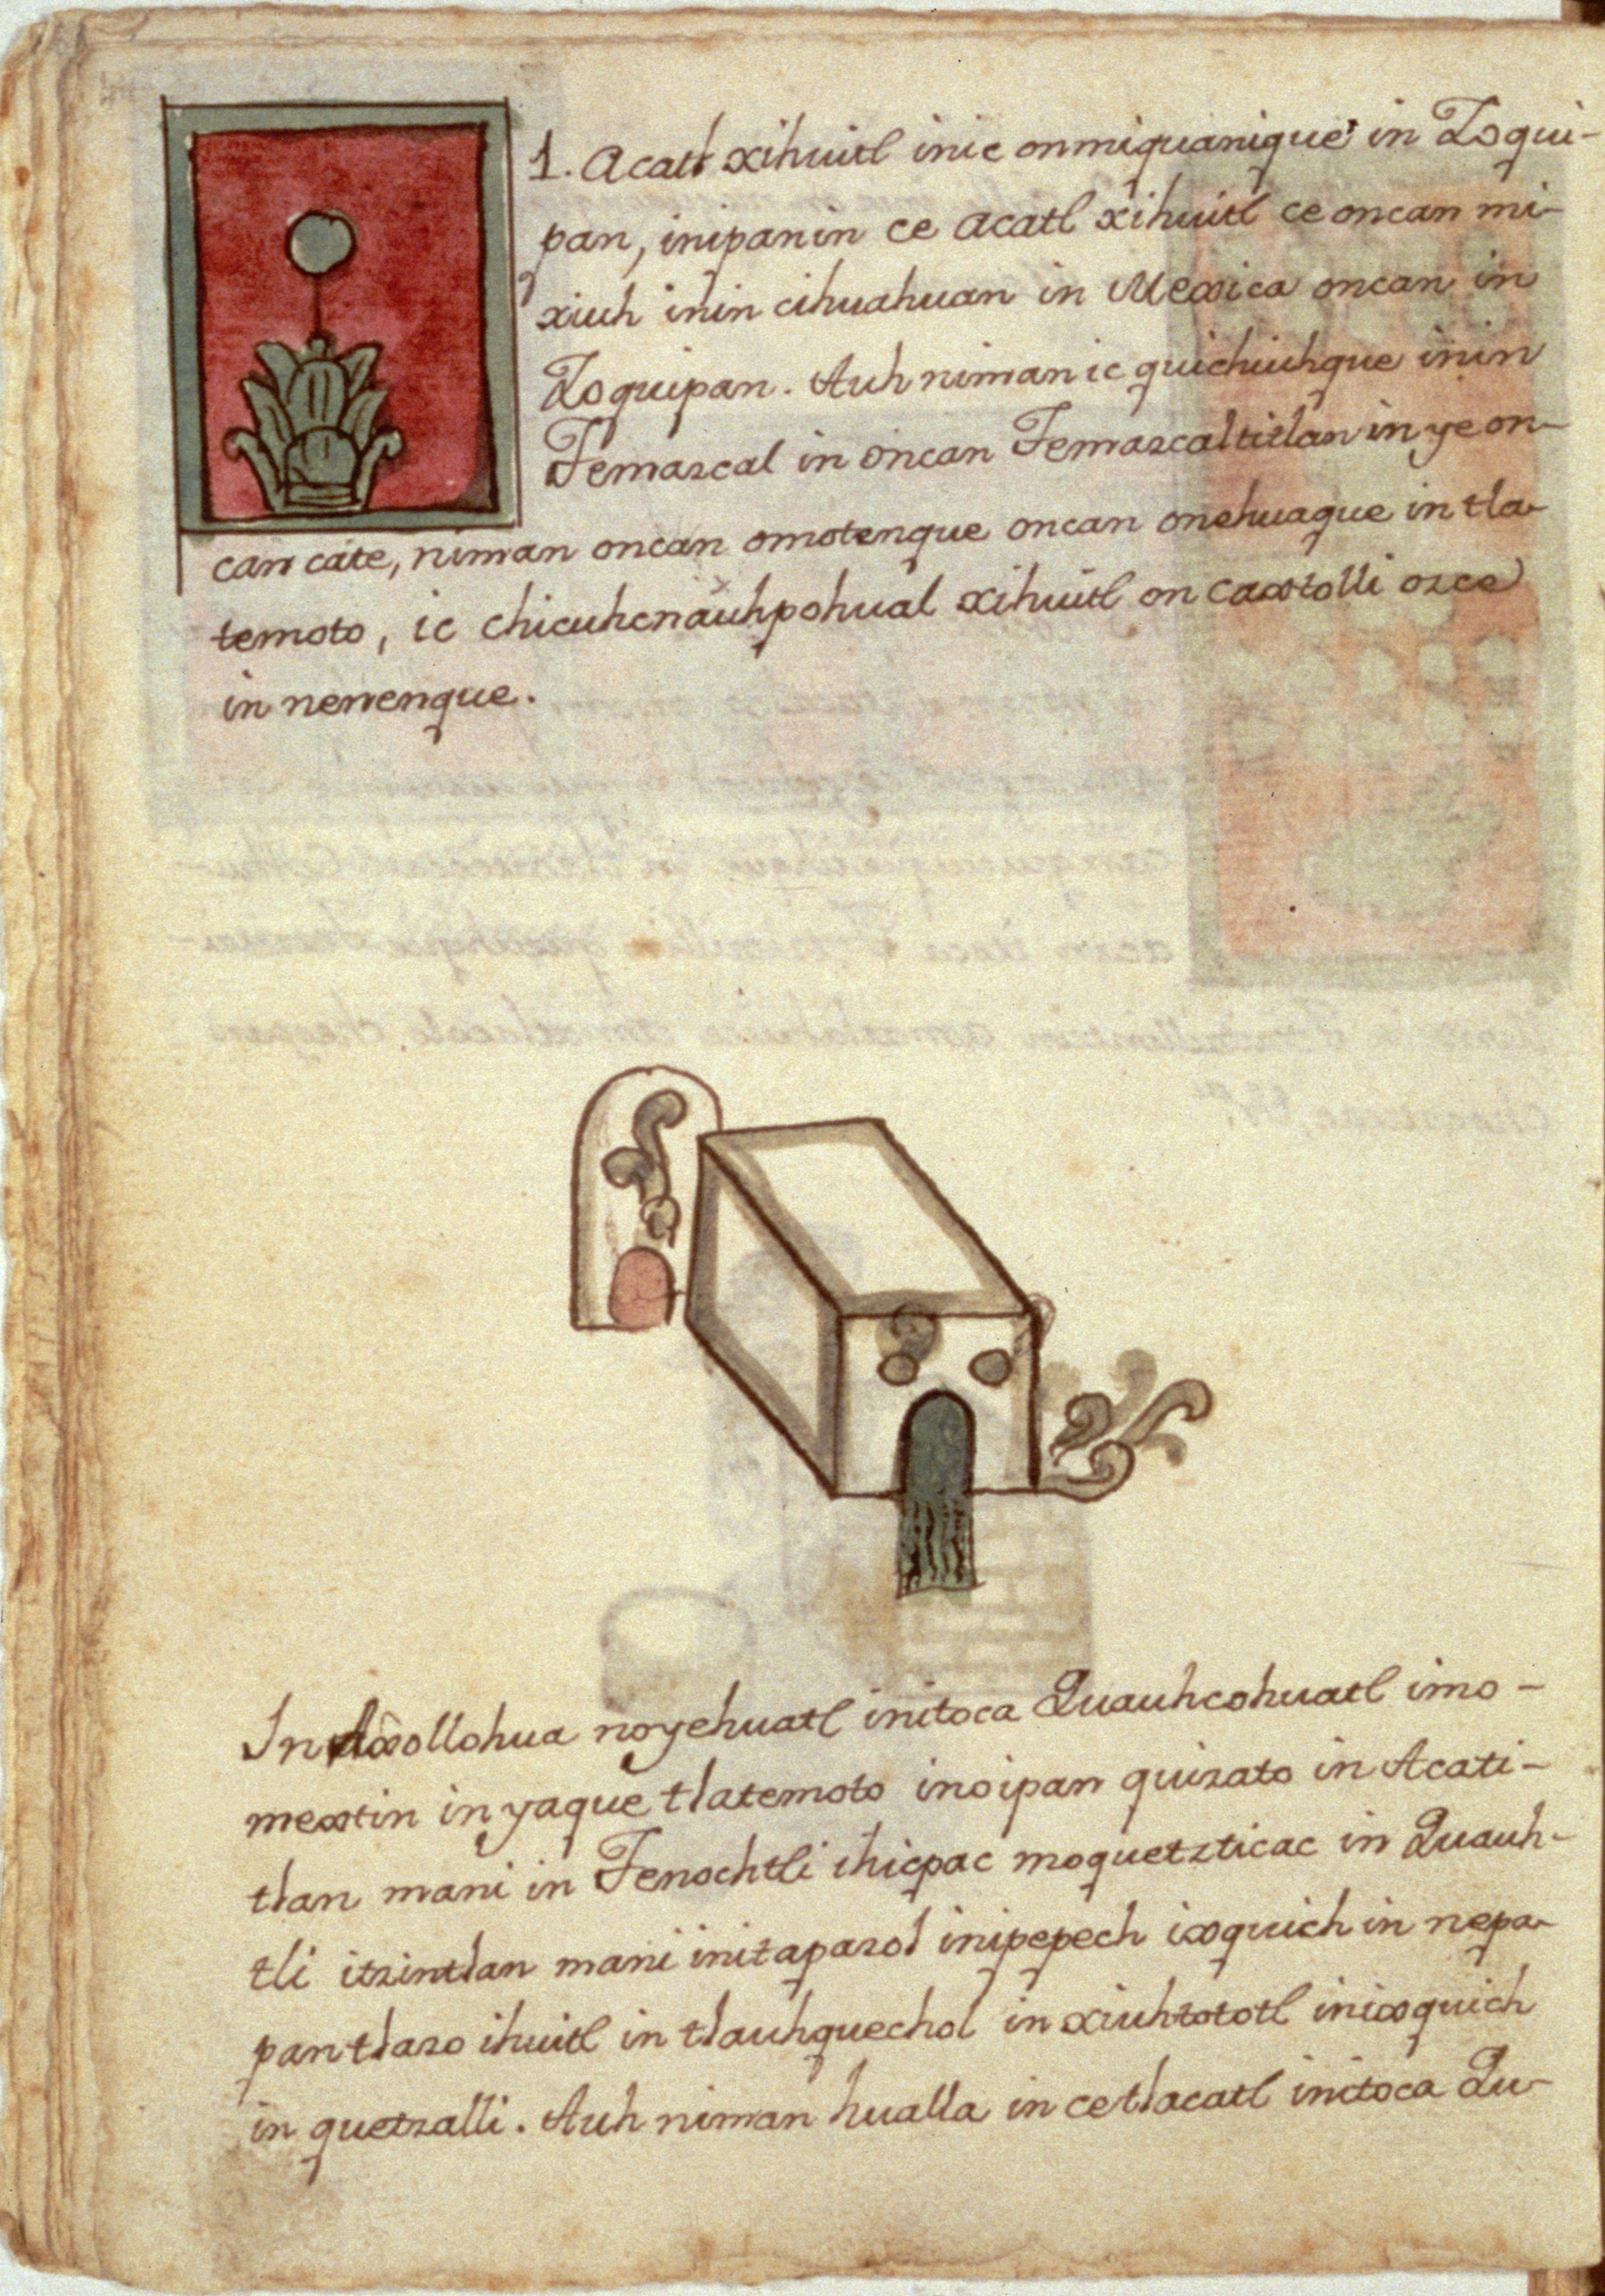 1. Acatl xihuitl inic onmiquanique in Zoqui-
pan, inipanin ce acatl xihuitl ce oncan mi-
xiuh inin cihuahuan in Mexica oncan in
Zoquipan. Auh niman ic quichiuhque inin
Temazcal in oncan Temazcaltitlan in ye on-
can cate, niman oncan omotenque oncan onehuaque in tla-
temoto, ic chicuhcnauhpohual xihuitl on caxtolli ozce
in nenenque.
In Axollohua noyehuatl initoca Quauhcohuatl imo-
mextin in yaque tlatemoto inoipan quizato in Acati-
tlan mani in Tenochtli ihicpac moquetzticac in Quauh-
tli itzintlan mani initapazol inipepech ixquich in nepa-
pan tlazo ihuitl in tlauhquechol in xiuhtototl inixquich
in quetzalli. Auh niman hualla in cetlacatl initoca Qu-